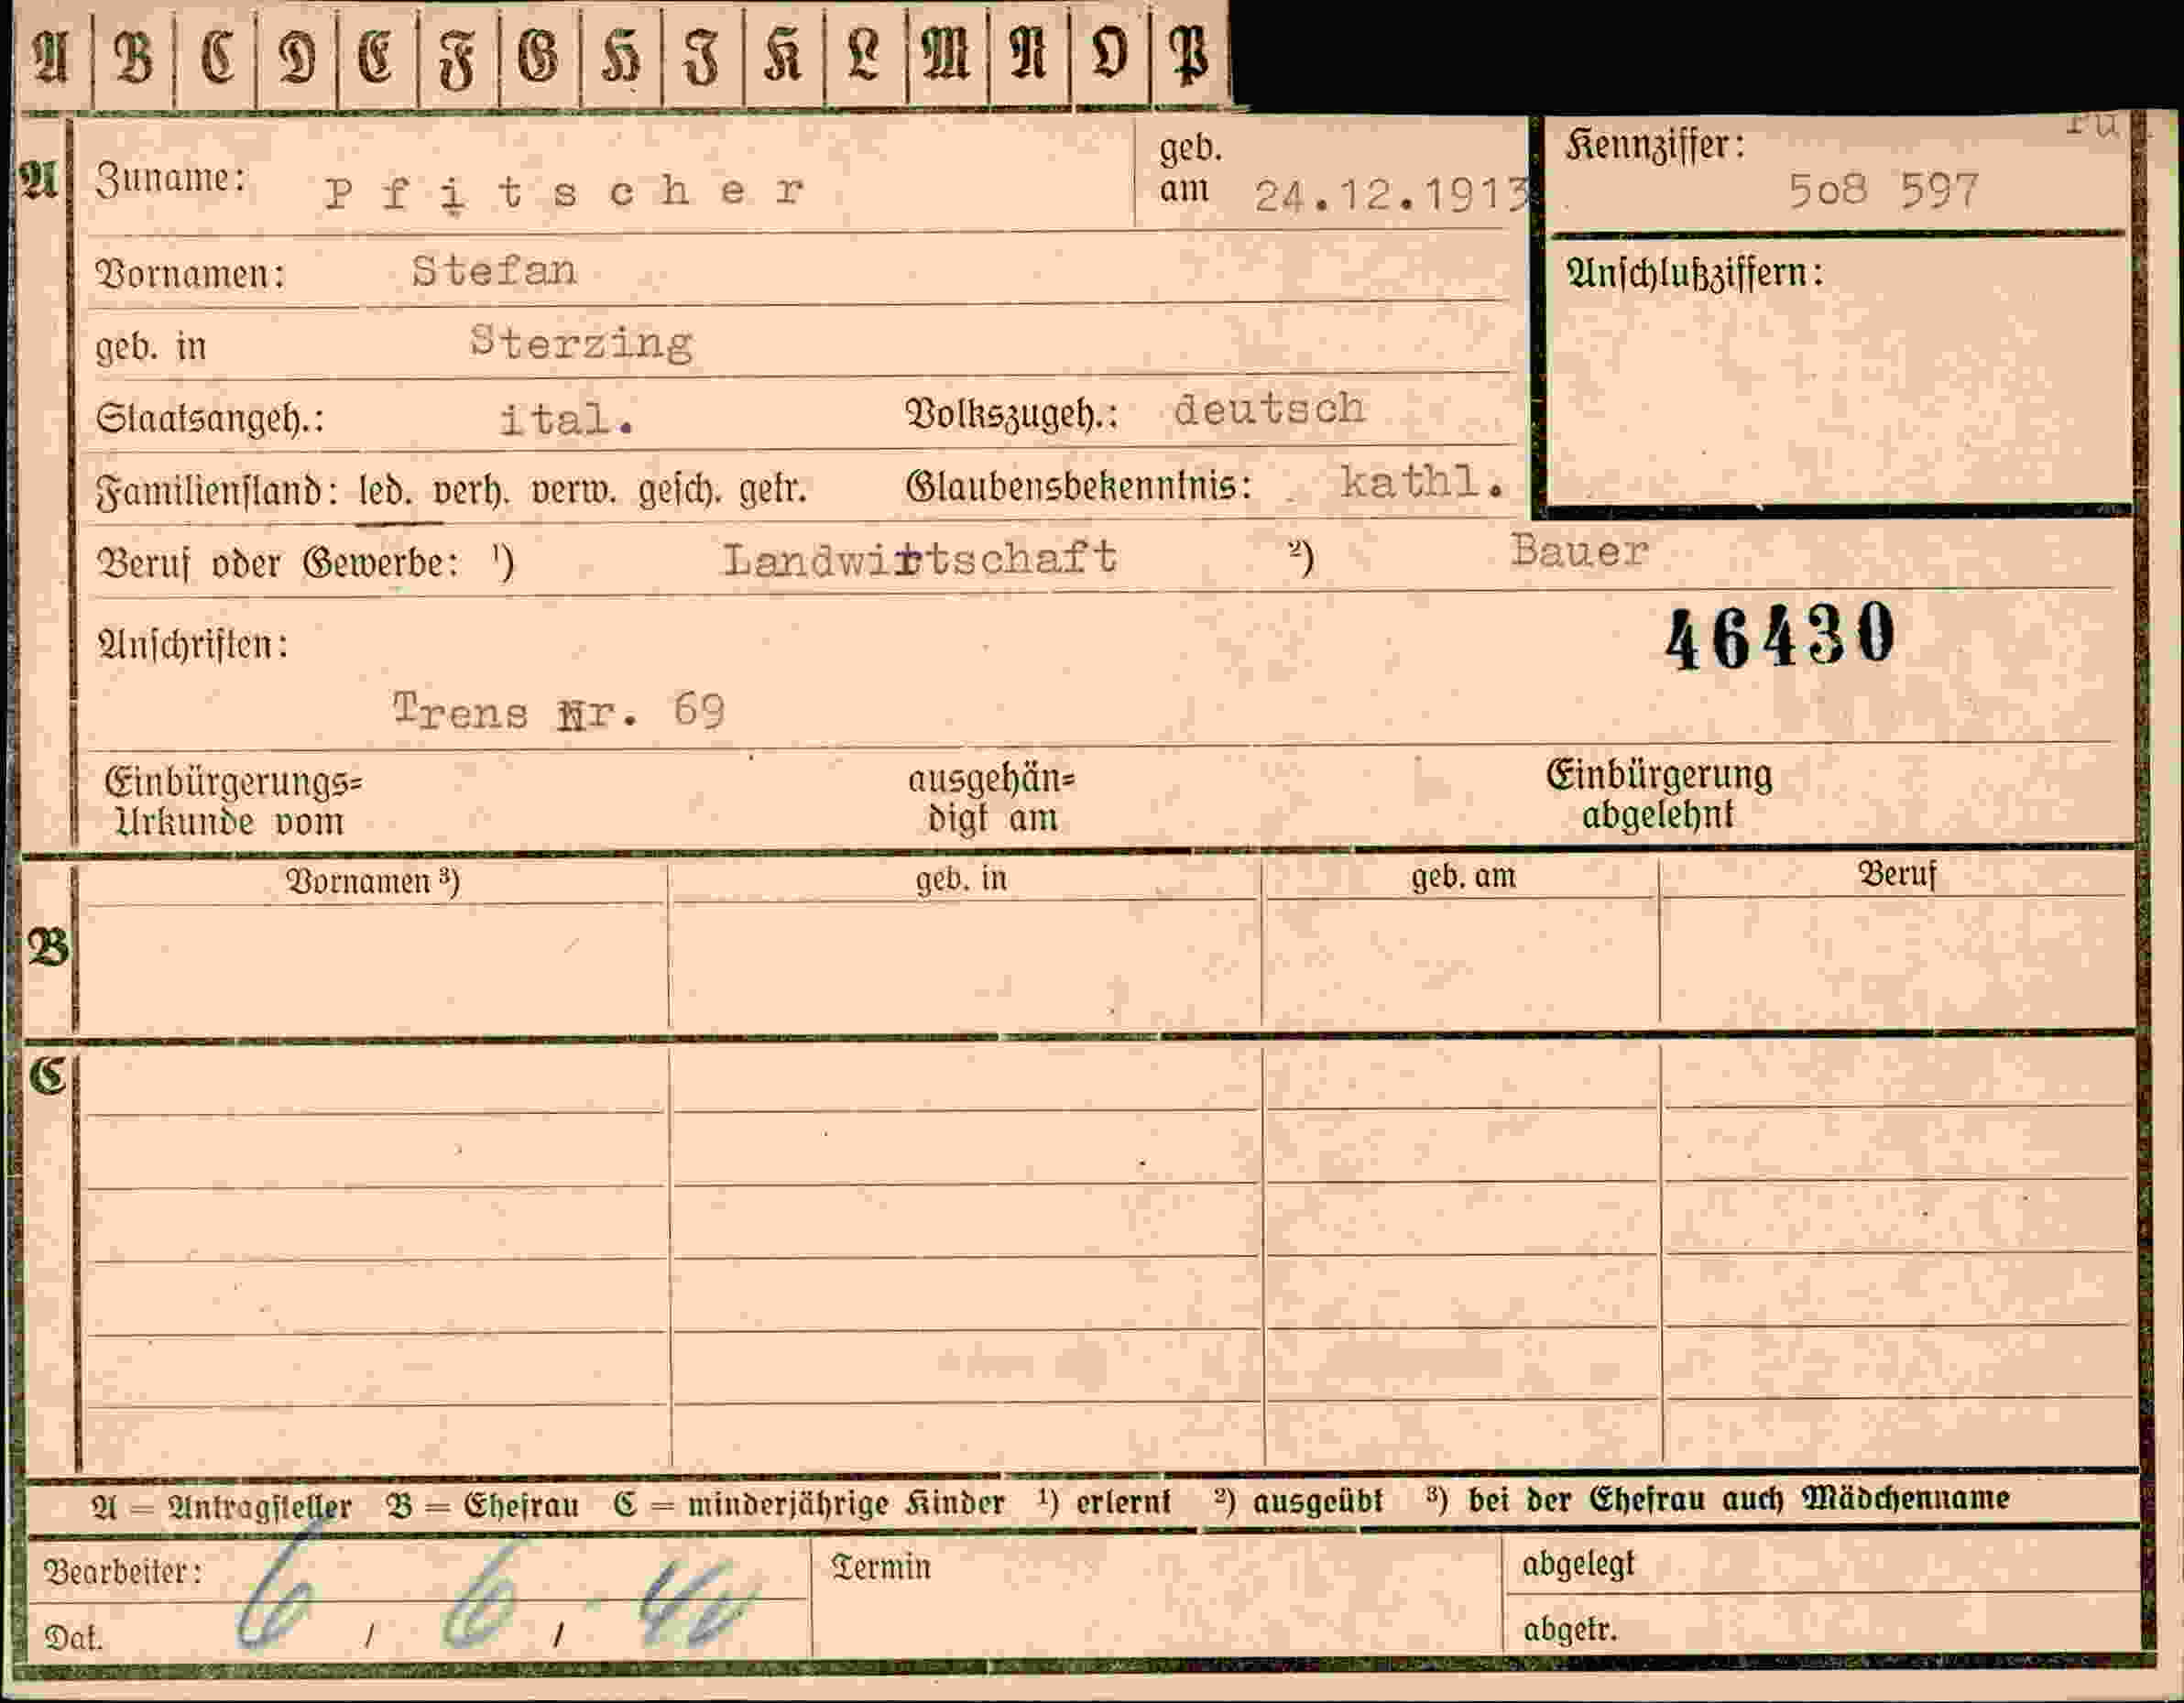 A B C D E F G H I K L M N O P
A Zuname: Pfitscher geb. am 24.12.1913 Kennziffer: 508 597
Vornamen: Stefan Anschlußziffern:
geb. in Sterzing
Staatsangeh.: ital. Volkszugeh.: deutsch
Familienstand: led. verh. verw. gesch. getr. Glaubensbekenntnis: kathl.
Beruf oder Gewerbe: ¹) Landwirtschaft ²) Bauer
Anschriften: 46430
Trens Nr. 69
Einbürgerungs= ausgehän= Einbürgerung
Urkunde vom digt am abgelehnt
Vornamen ³) geb. in geb. am Beruf
B
C
A = Antragsteller B = Ehefrau C = minderjährige Kinder ¹) erlernt ²) ausgeübt ³) bei der Ehefrau auch Mädchenname
Bearbeiter: Termin abgelegt
Dat. 6 / 6 / 40 abgetr.